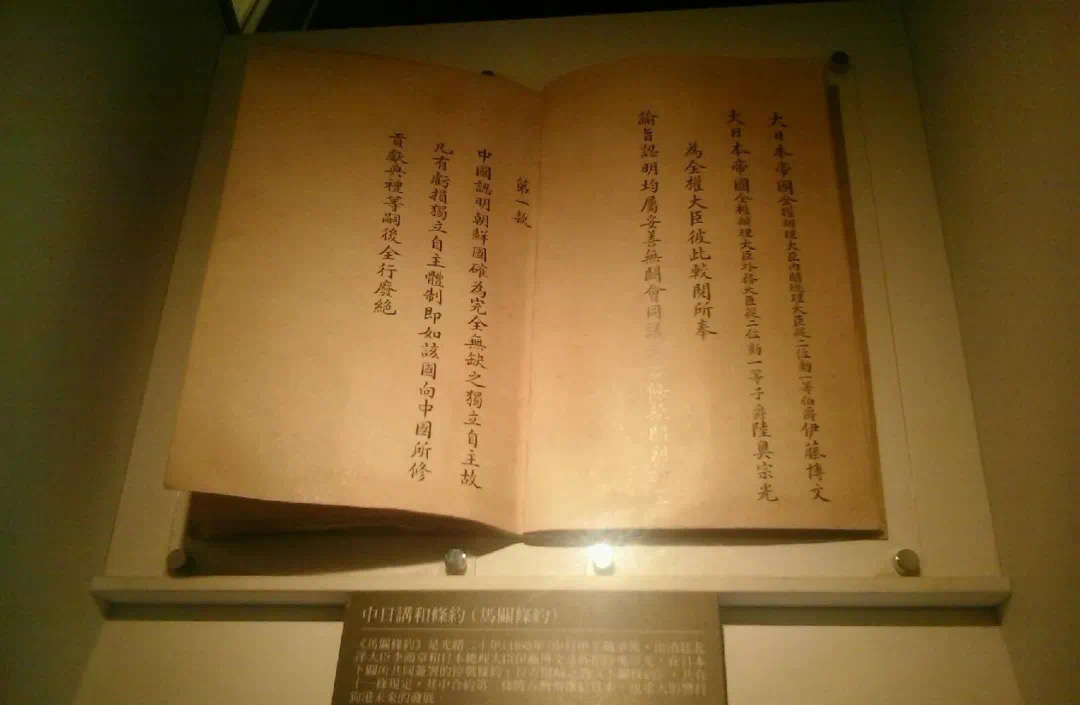 大日本帝國全權辦理大臣內閣總理大臣從二位勳一等伯爵伊藤博文
大日本帝國全權辦理大臣外務大臣從二位勳一等子爵陸奧宗光
為全權大臣彼此較閱所奉
諭旨認明均屬妥善無闕會同議
第一款
中國認明朝鮮國確為完全無缺之獨立自主故
凡有虧損獨立自主體制即如該國向中國所修
貢獻典禮等嗣後全行廢絕
中日講和條約（馬關條約）
《馬關條約》是光緒二十
洋大臣李鴻章和日本總理大臣伊藤博文
下關所共同簽署的
十一條規定，其中合約第二條將台灣